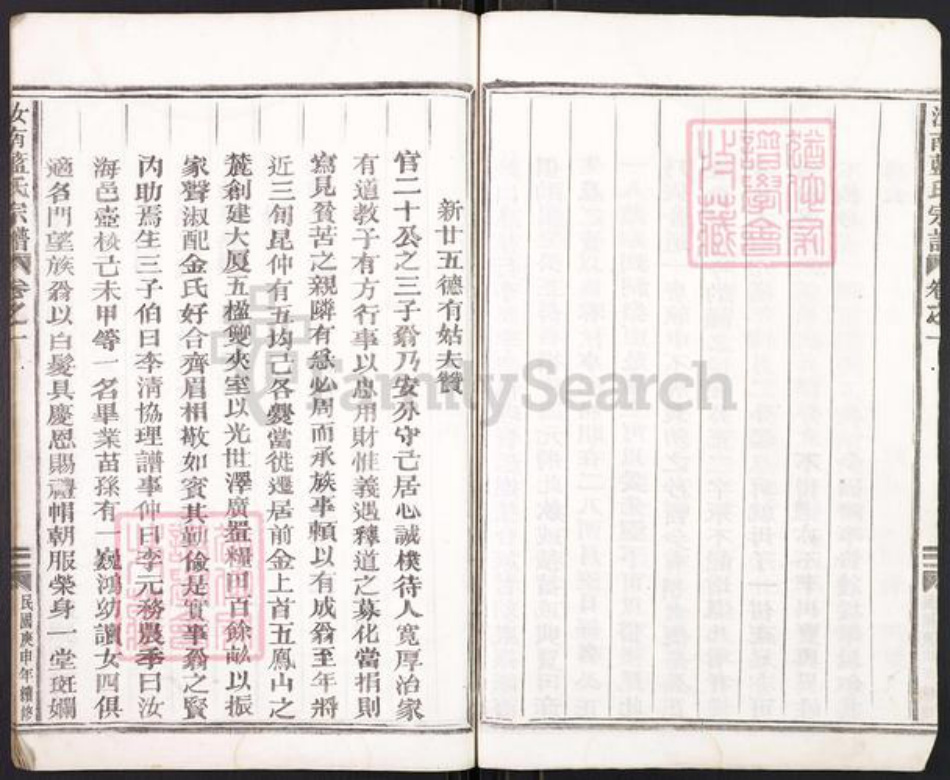 新廿五德有姑夫贊
官二十公之三子翁乃安分守己居心誠樸待人寬厚治家
有道教子有方行事以應用財惟義遇釋道之募化當捐則
寫見貧苦之親隣有急必周而承族事頼以有成翁至年將
近三旬昆仲有五均已各爨當徙遷居前金上首五鳳山之
麓創建大厦五楹雙夾室以光世澤廣置糧田百餘畝以振
家聲淑配金氏好合齊眉相敬如賓其勤儉是實事翁之賢
內助焉生三子伯曰李淸協理譜事仲曰李元務農季曰汝
海邑壺校己未甲等一名畢業苗孫有一巍鴻幼讀女四俱
適名門望族翁以白髮具慶恩賜禮帽朝服榮身一堂斑斕
汝南藍氏宗譜 卷之一
民國庚申年續修
FamilySearch